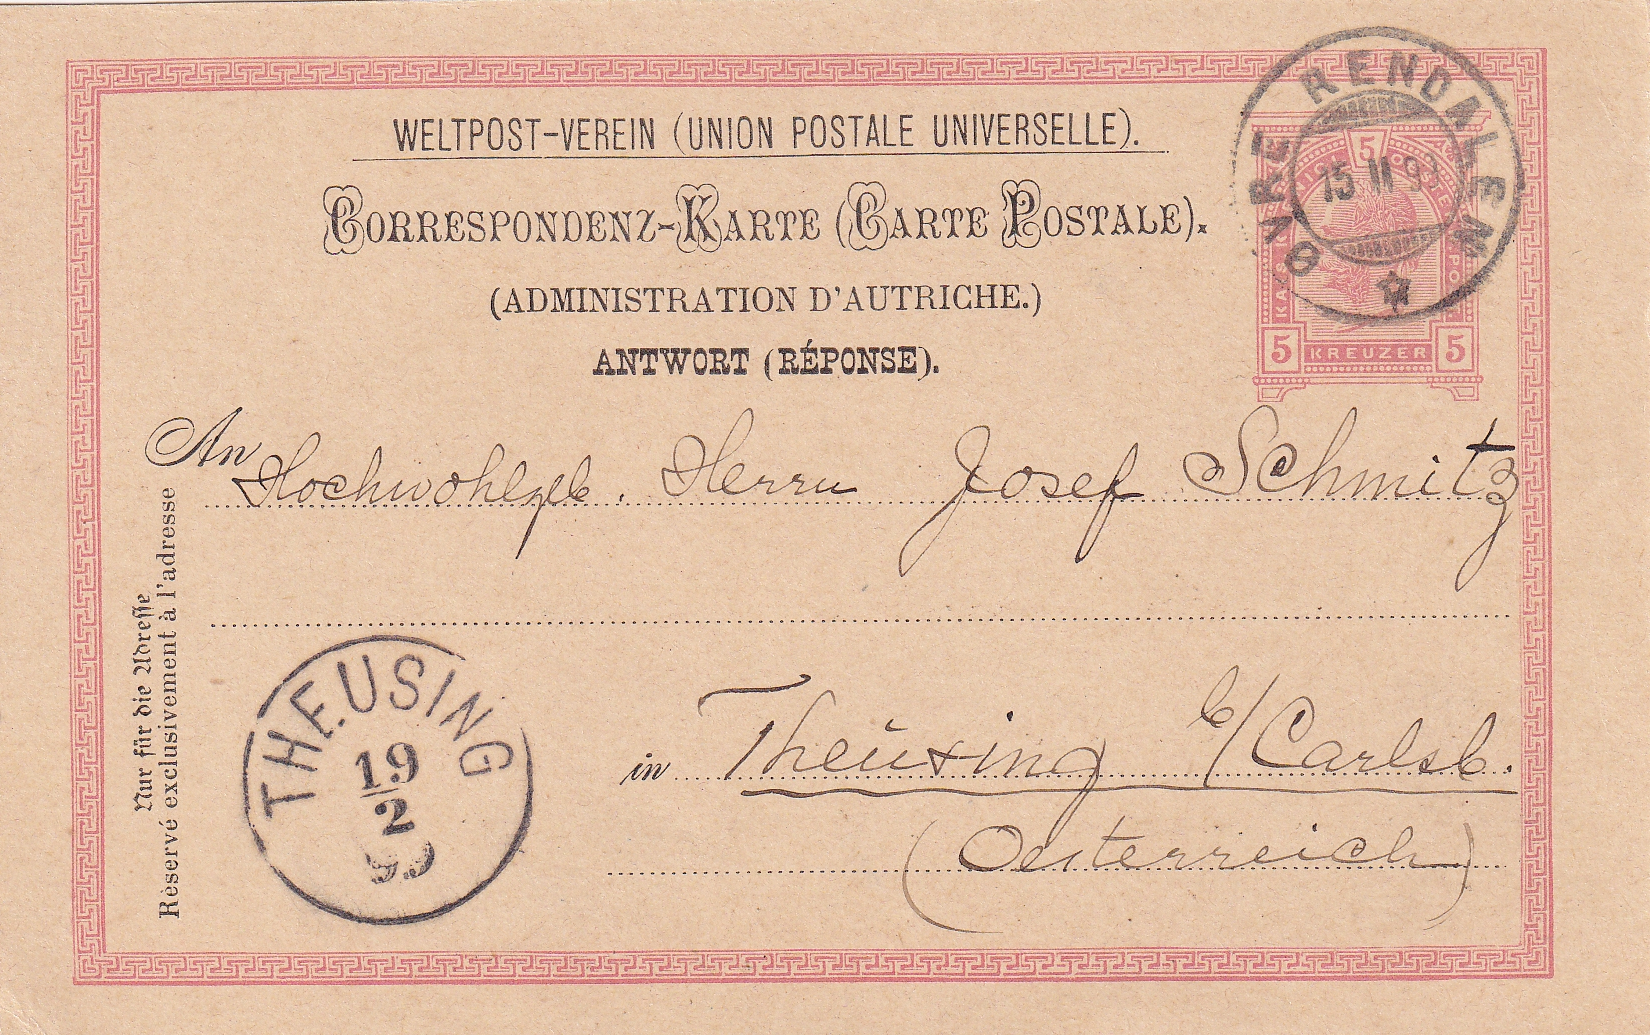 WELTPOST-VEREIN (UNION POSTALE UNIVERSELLE).
CORRESPONDENZ-KARTE (CARTE POSTALE).
(ADMINISTRATION D'AUTRICHE.)
ANTWORT (RÉPONSE).
ØVRE RENDALEN
15 II 99
5
5 KREUZER 5
An Hochwohlgeb. Herrn Josef Schmitz
in Theüsing b/Carlsb.
(Oesterreich)
THEUSING
19
2
99
Nur für die Adresse
Réservé exclusivement à l'adresse